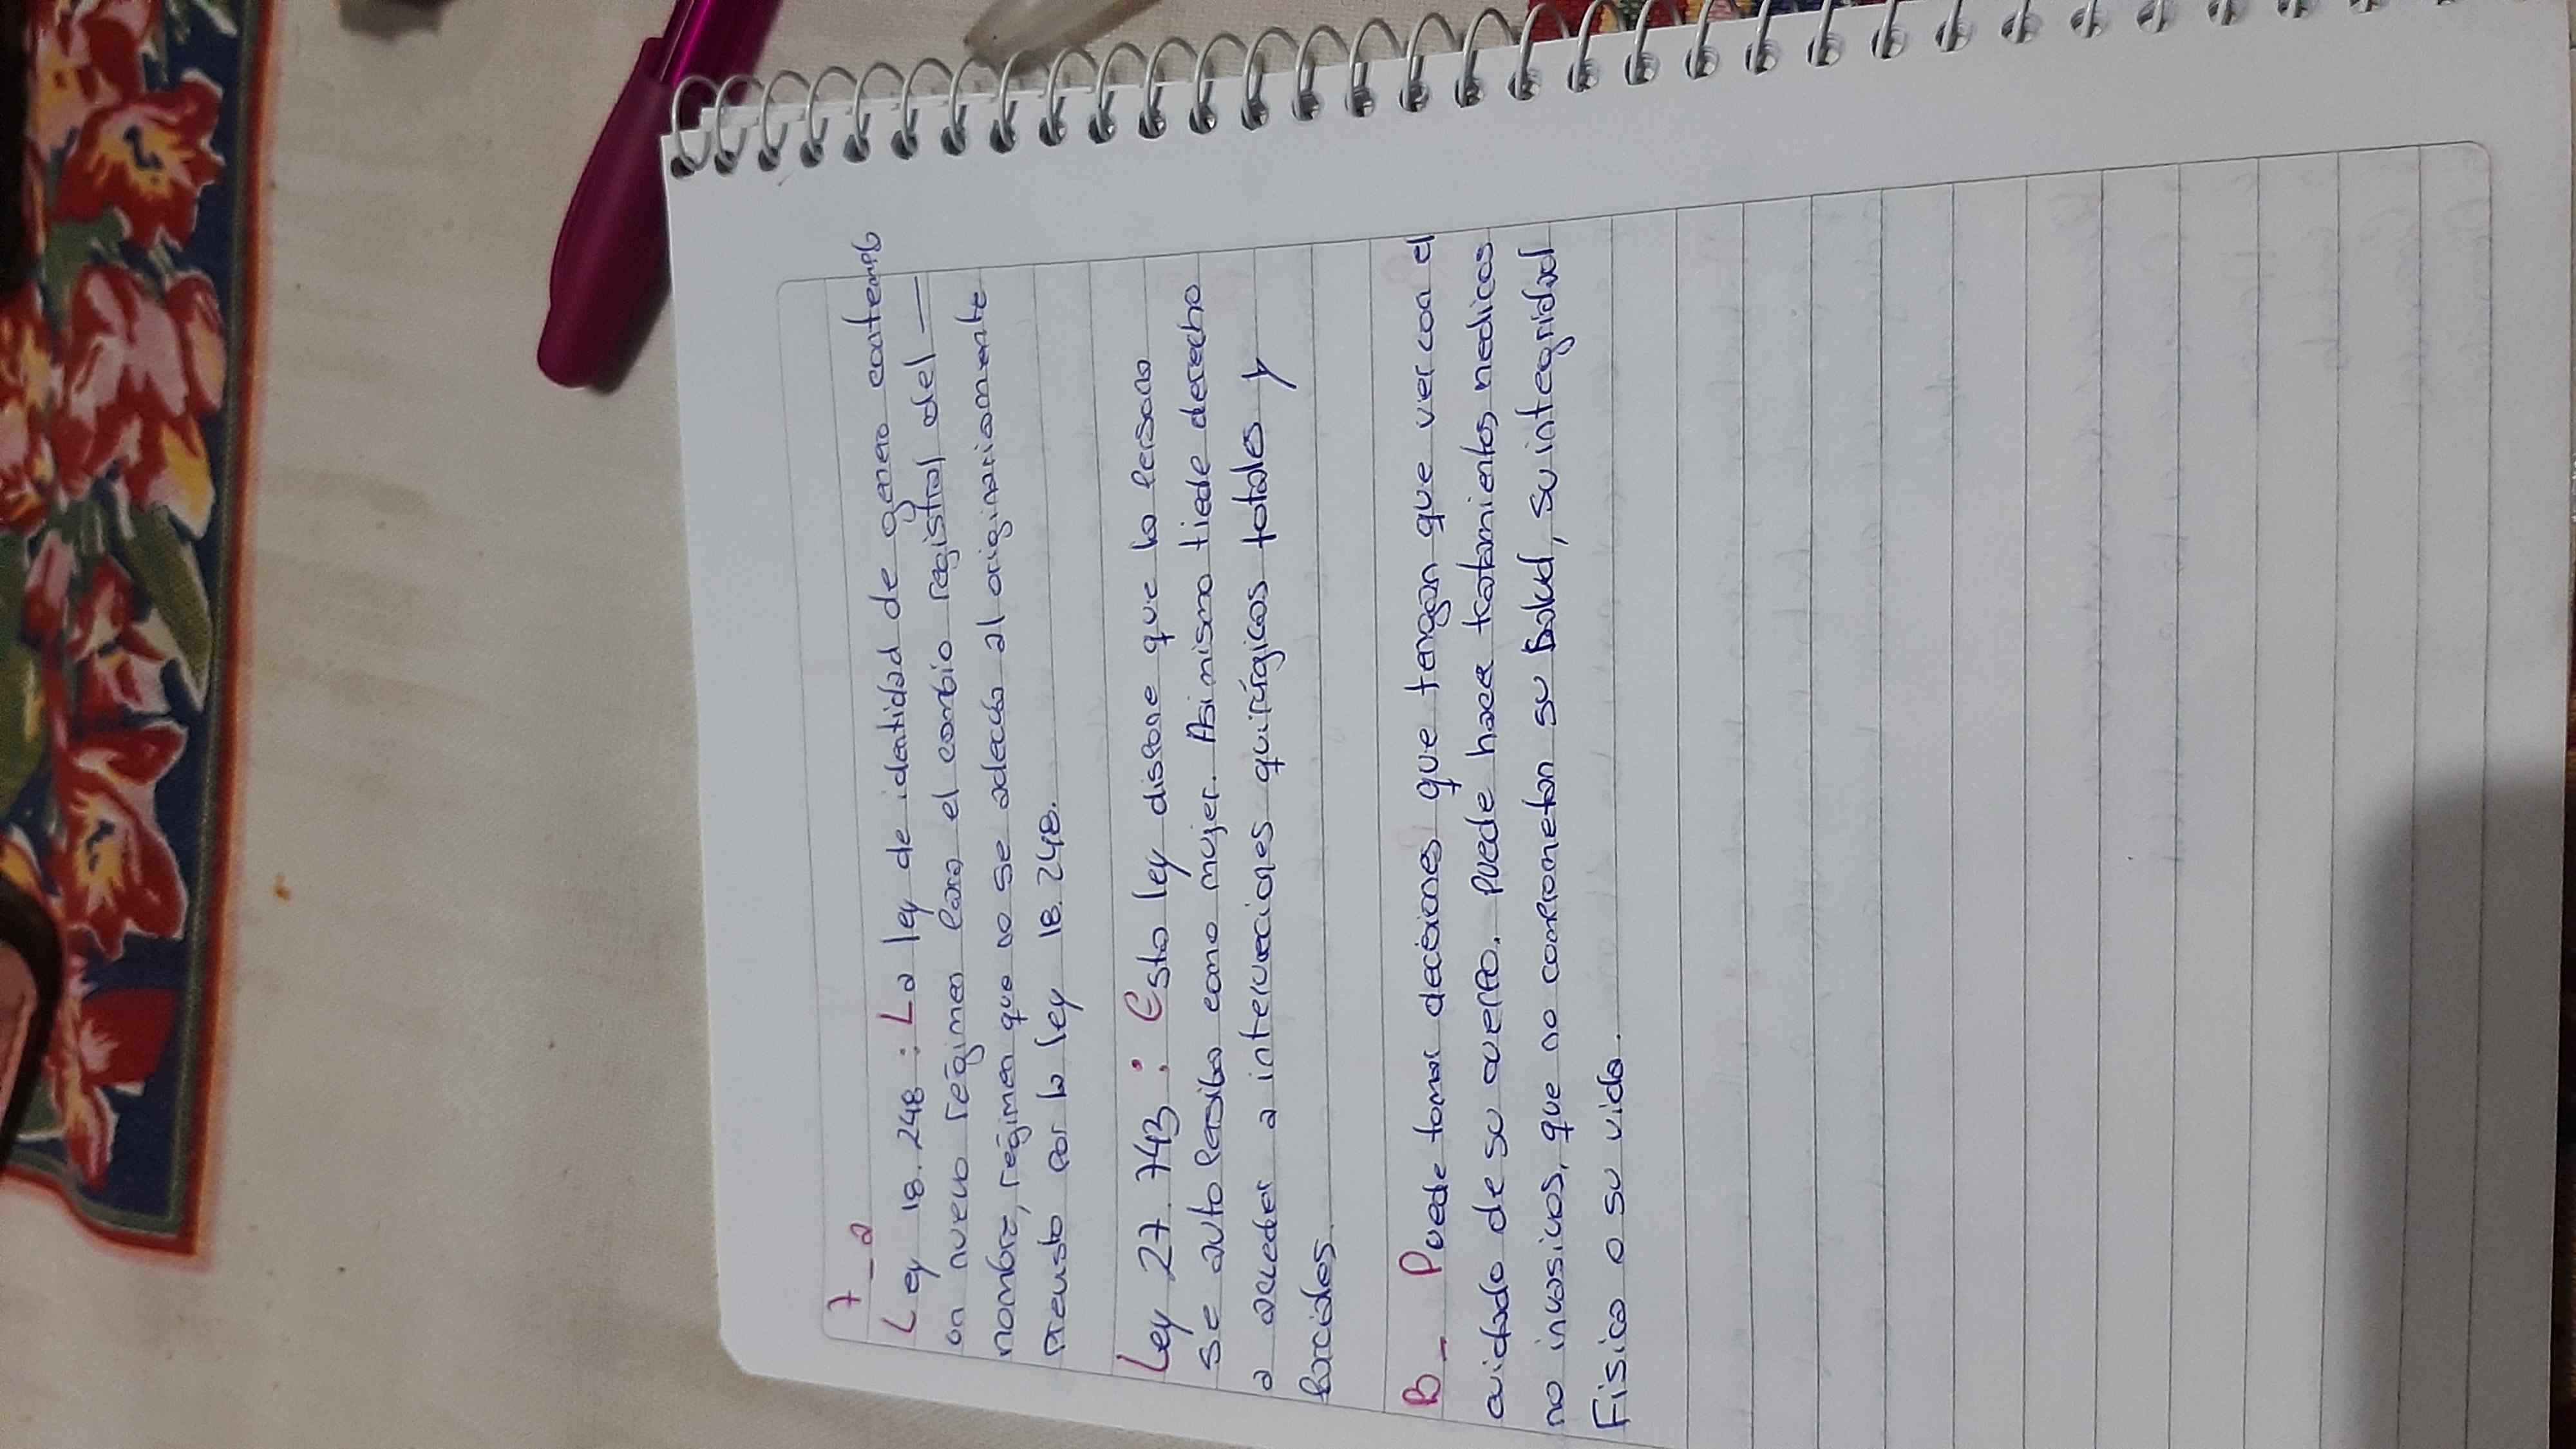 7_a
Ley 18.248: La ley de identidad de genero contempla
un nuevo régimen para el cambio registral del —
nombre, régimen que no se adecúa al originariamente
previsto por la ley 18.248.
Ley 27.743: Esta ley dispone que la persona
se auto persiba como mujer. Asimismo tiede derecho
a acceder a intervenciones quirúrgicas totales y
parciales
B_ Puede tomar decisiones que tengan que ver con el
cuidado de su cuerpo. puede hacer tratamientos medicos
no invasivos, que no comprometan su salud, su integridad
Fisica o su vida.